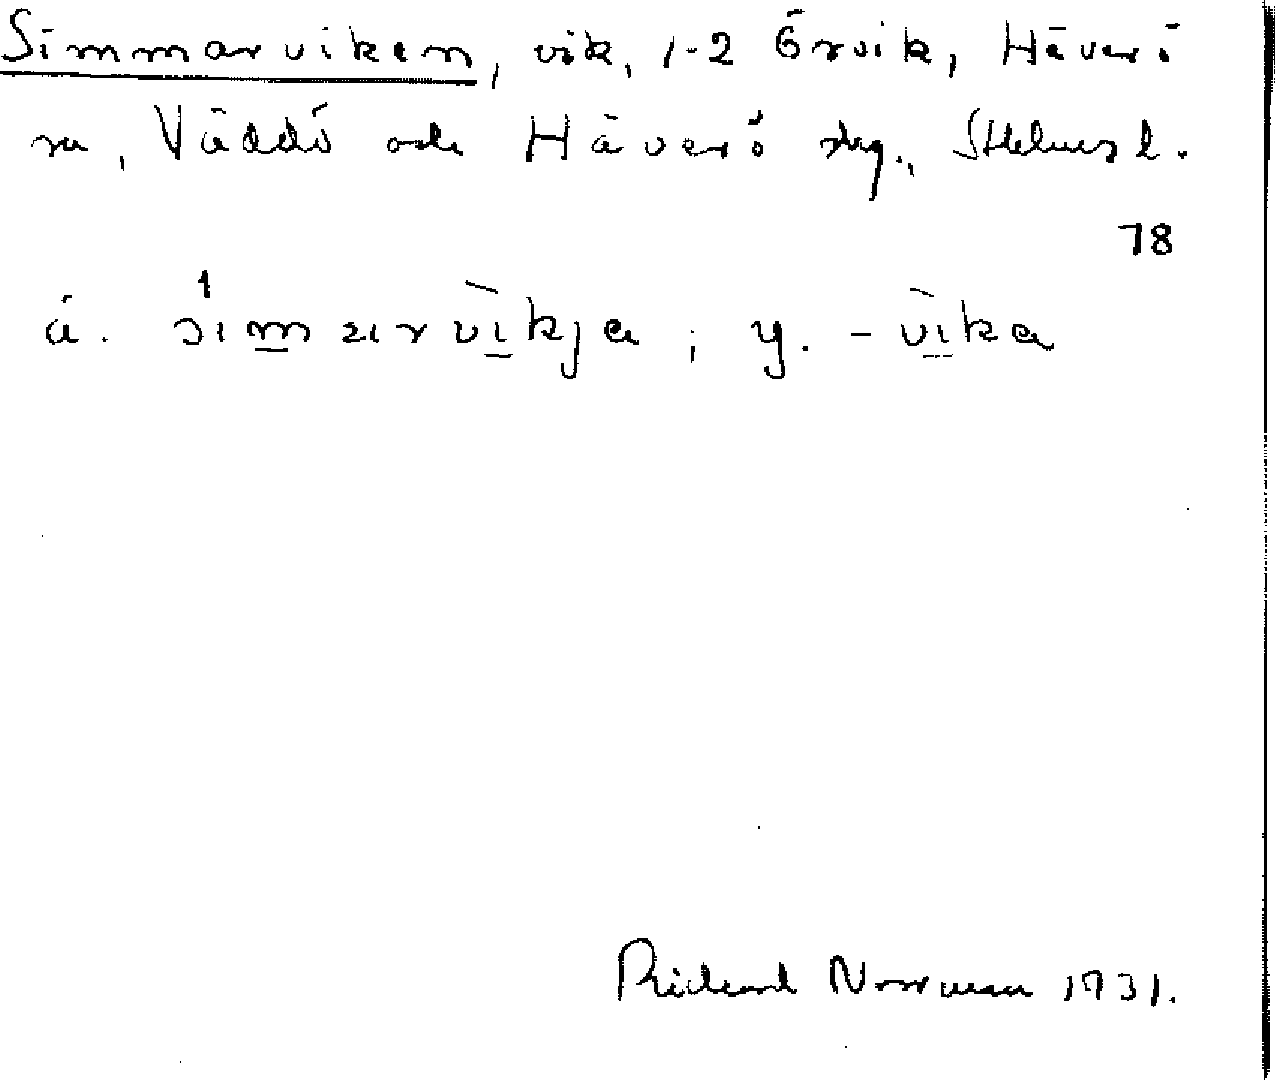 Simmarviken, vik, 1-2 Örvik, Häverö
sn, Väddö och Häverö skg., Sthlms l.
78
ä. simarvikja; y. -vika
Rickard Norrman 1931.